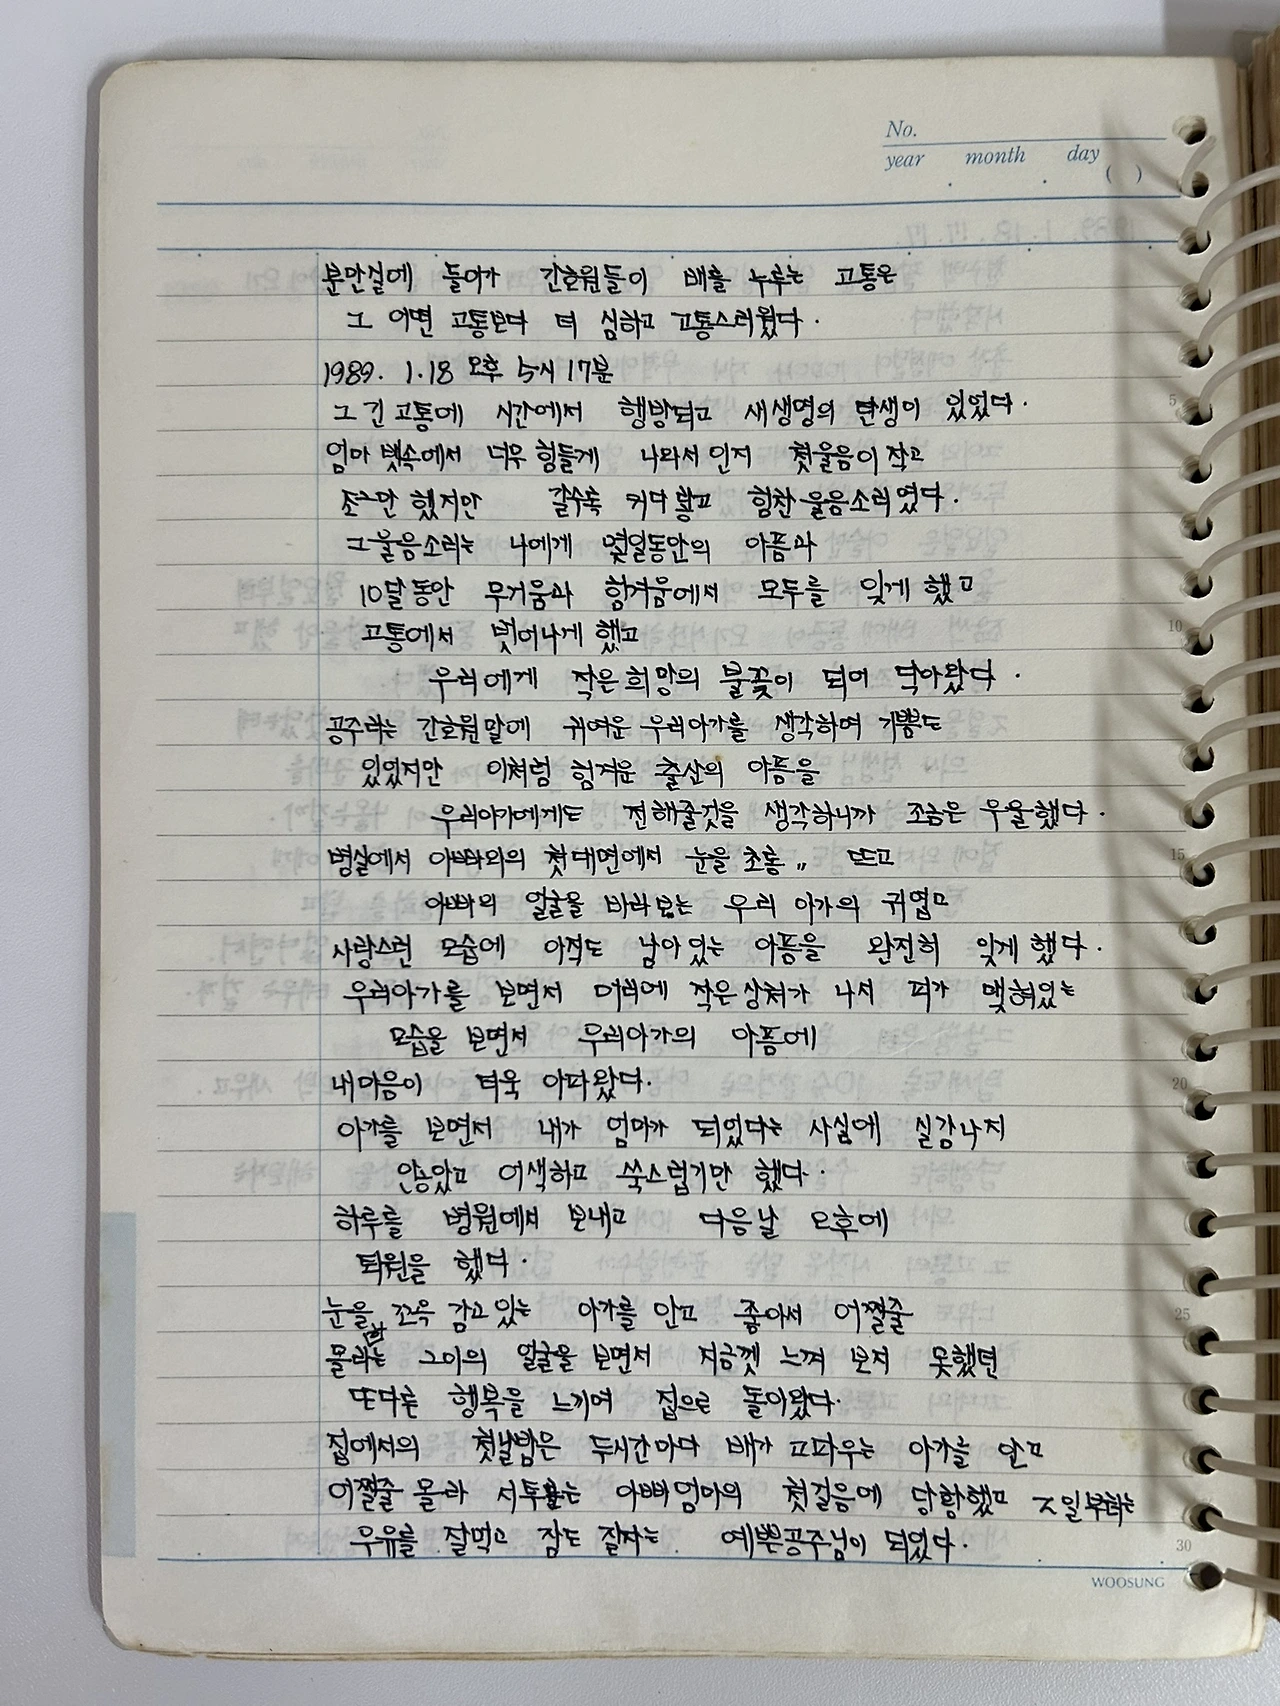 No.
year month day
( )
분만실에 들어가 간호원들이 배를 누루는 고통은
그 어떤 고통보다 더 심하고 고통스러웠다.
1989. 1.18 오후 5시 17분
그 긴 고통에 시간에서 해방되고 새생명의 탄생이 있었다.
엄마 뱃속에서 너무 힘들게 나와서인지 첫울음이 작고
조그만 했지만 갈수록 커다랗고 힘찬 울음소리였다.
그 울음소리는 나에게 몇일동안의 아픔과
10달동안 무거움과 힘겨움에서 모두를 잊게 했고
고통에서 벗어나게 했고
우리에게 작은 희망의 불꽃이 되어 닥아왔다.
공주라는 간호원말에 귀여운 우리아가를 생각하며 기쁨도
있었지만 이처럼 힘겨운 출산의 아픔을
우리아가에게도 전해줄것을 생각하니까 조금은 우울했다.
병실에서 아빠와의 첫대면에서 눈을 초롱〃 뜨고
아빠의 얼굴을 바라보는 우리 아가의 귀엽고
사랑스런 모습에 아직도 남아있는 아픔을 완전히 잊게 했다.
우리아가를 보면서 머리에 작은상처가 나서 피가 맺혀있는
모습을 보면서 우리아가의 아픔에
내마음이 더욱 아파왔다.
아가를 보면서 내가 엄마가 되었다는 사실에 실감나지
안았고 어색하고 쑥스럽기만 했다.
하루를 병원에서 보내고 다음날 오후에
퇴원을 했다.
눈을 꼬옥 감고있는 아가를 안고 좋아서 어쩔줄
몰라하는 그이의 얼굴을 보면서 지금껏 느껴 보지 못했던
또다른 행복을 느끼며 집으로 돌아왔다.
집에서의 첫날밤은 두시간마다 배가 고파우는 아가를 안고
어쩔줄 몰라 서투른 아빠엄마의 첫걸음에 당황했고 Z일부터는
우유를 잘먹고 잠도 잘자는 예쁜공주님이 되었다.
5
10
15
20
25
30
WOOSUNG